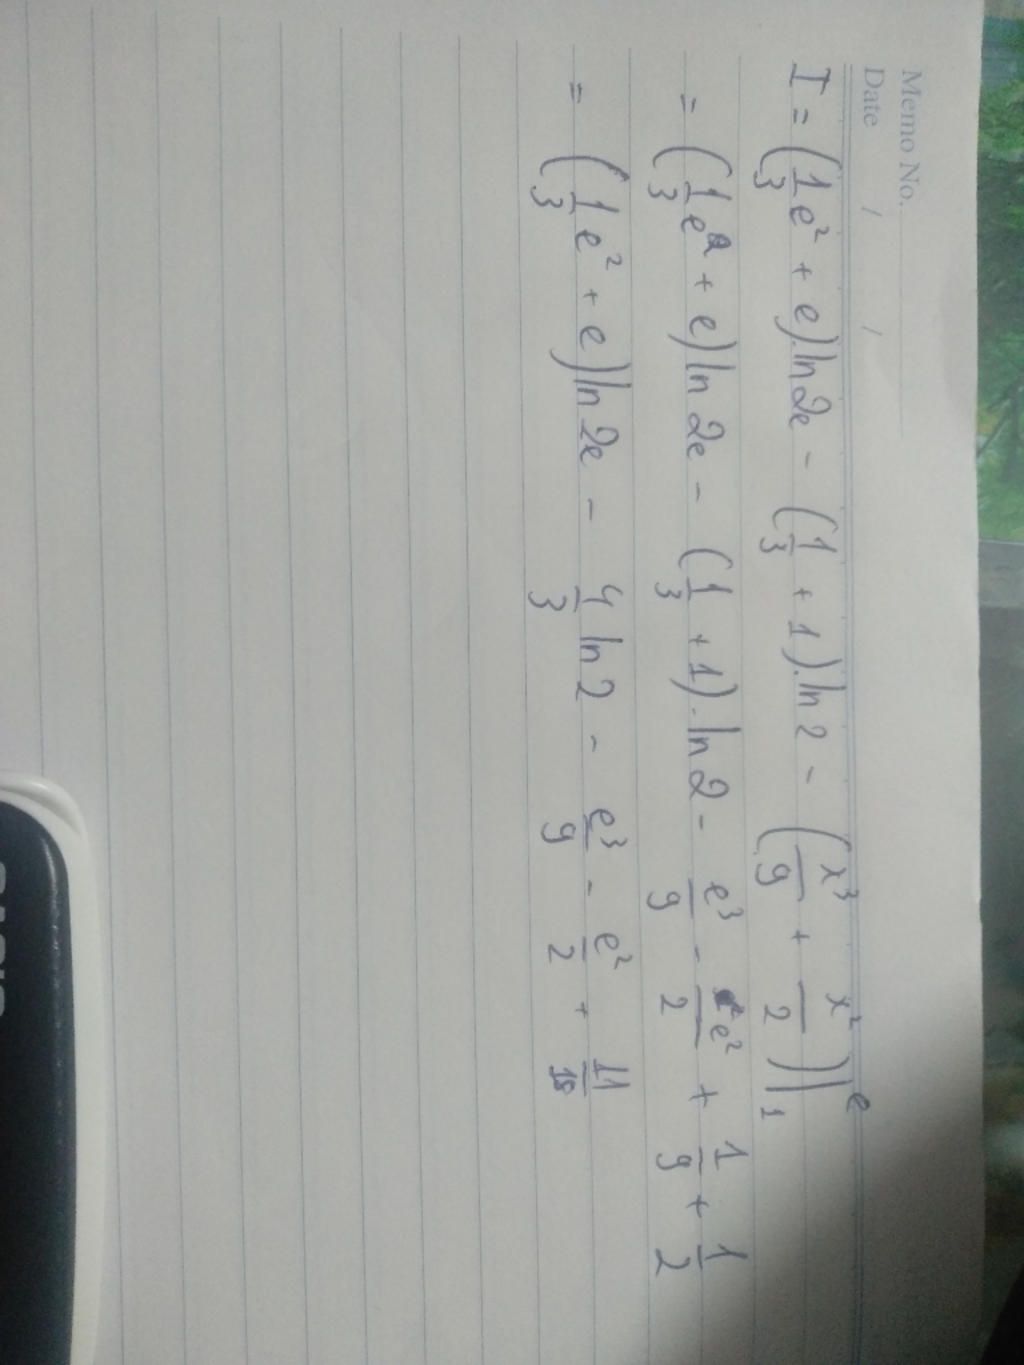 Memo No.
Date / /
I = (1/3 e² + e).ln2e - (1/3 + 1).ln 2 - (x³/9 + x²/2)|₁ᵉ
= (1/3 e² + e)ln 2e - (1/3 + 1).ln2 - e³/9 - e²/2 + 1/9 + 1/2
= (1/3 e² + e)ln 2e - 4/3 ln2 - e³/9 - e²/2 + 11/18